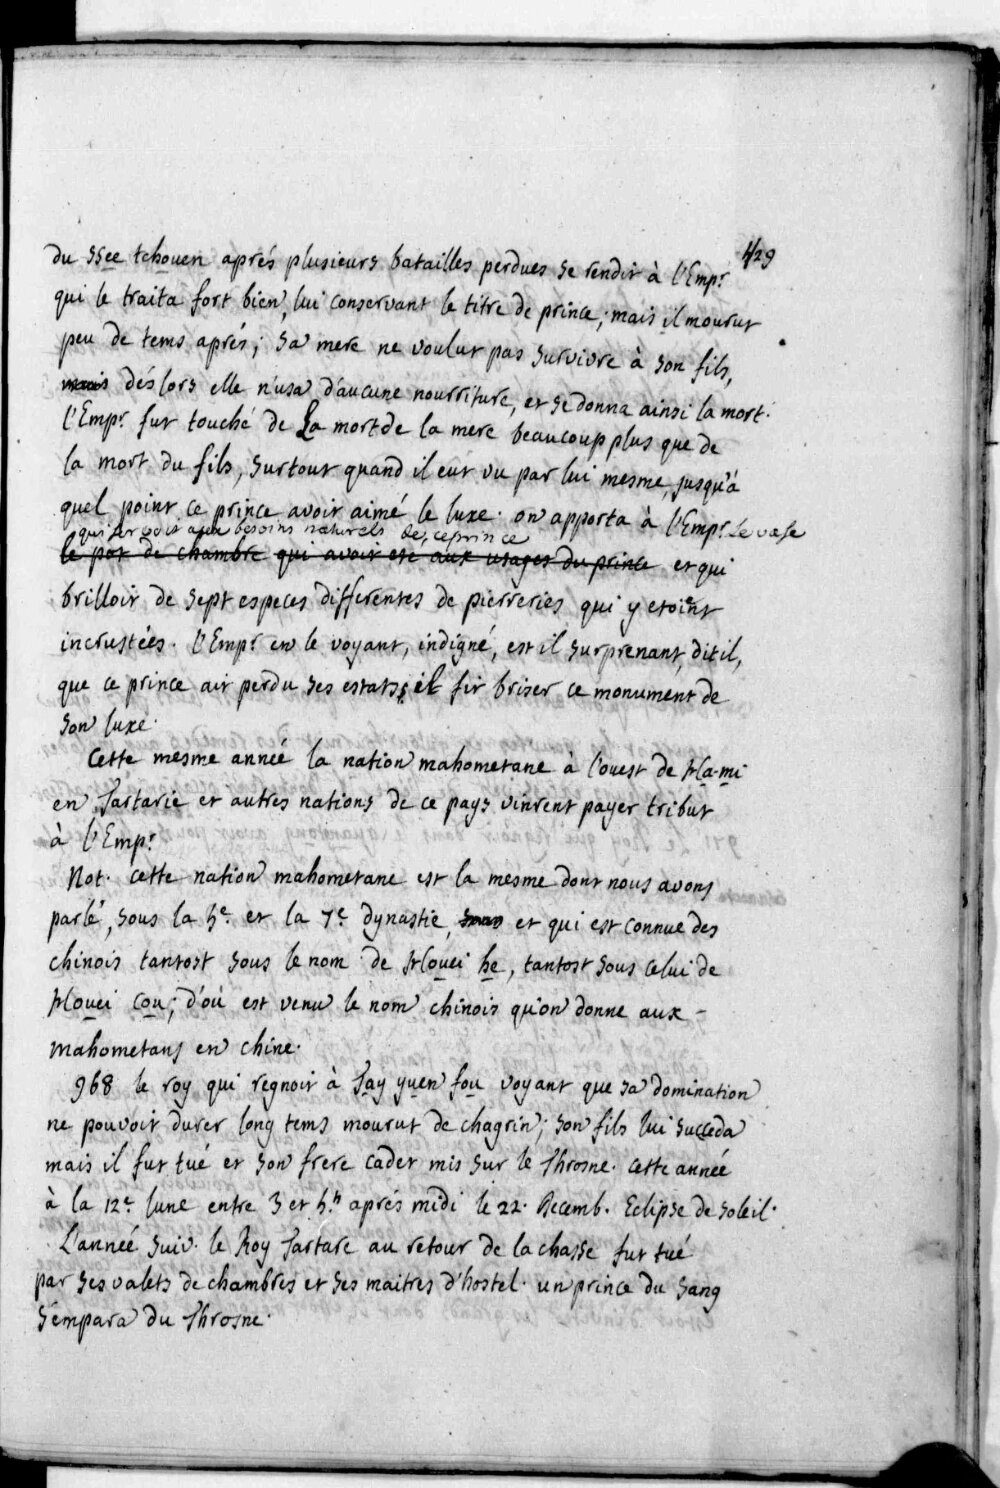 429
du ssee tchouen aprés plusieurs batailles perdues se rendit à l'Empr
qui le traita fort bien, lui conservant le titre de prince; mais il mourut
peu de tems aprés; sa mere ne voulut pas survivre à son fils,
mais déslors elle n'usa d'aucune nourriture, et se donna ainsi la mort.
l'Empr fut touché de La mort de la mere beaucoup plus que de
la mort du fils, surtout quand il eut vu par lui mesme, jusqu'à
quel point ce prince avoit aimé le luxe. on apporta à l'Empr le vase
qui servoit aux besoins naturels de ce prince
le pot de chambre qui avoit eté aux usages du prince et qui
brilloit de sept especes differentes de pierreries qui y etoient
incrustées. l'Empr en le voyant, indigné, est il surprenant, dit il,
que ce prince ait perdu ses estats; il fit briser ce monument de
son luxe.
Cette mesme anneé la nation mahometane à l'ouest de Ha-mi
en Tartarie et autres nations de ce pays vinrent payer tribut
à l'Empr
Not. cette nation mahometane est la mesme dont nous avons
parlé, sous la 5e et la 7e dynastie, sous et qui est connue des
chinois tantost sous le nom de Houei he, tantost sous celui de
Houei cou; d'où est venu le nom chinois qu'on donne aux -
mahometans en chine.
968 le roy qui regnoit à Tay yuen fou voyant que sa domination
ne pouvoit durer long tems mourut de chagrin; son fils lui succeda
mais il fut tué et son frere cadet mis sur le Throsne. cette année
à la 12e lune entre 3 et 5h aprés midi le 22. Decemb. Eclipse de soleil.
L'anneé suiv. le Roy Tartare au retour de la chasse fut tué
par ses valets de chambres et ses maitres d'hostel. un prince du sang
s'empara du Throsne.